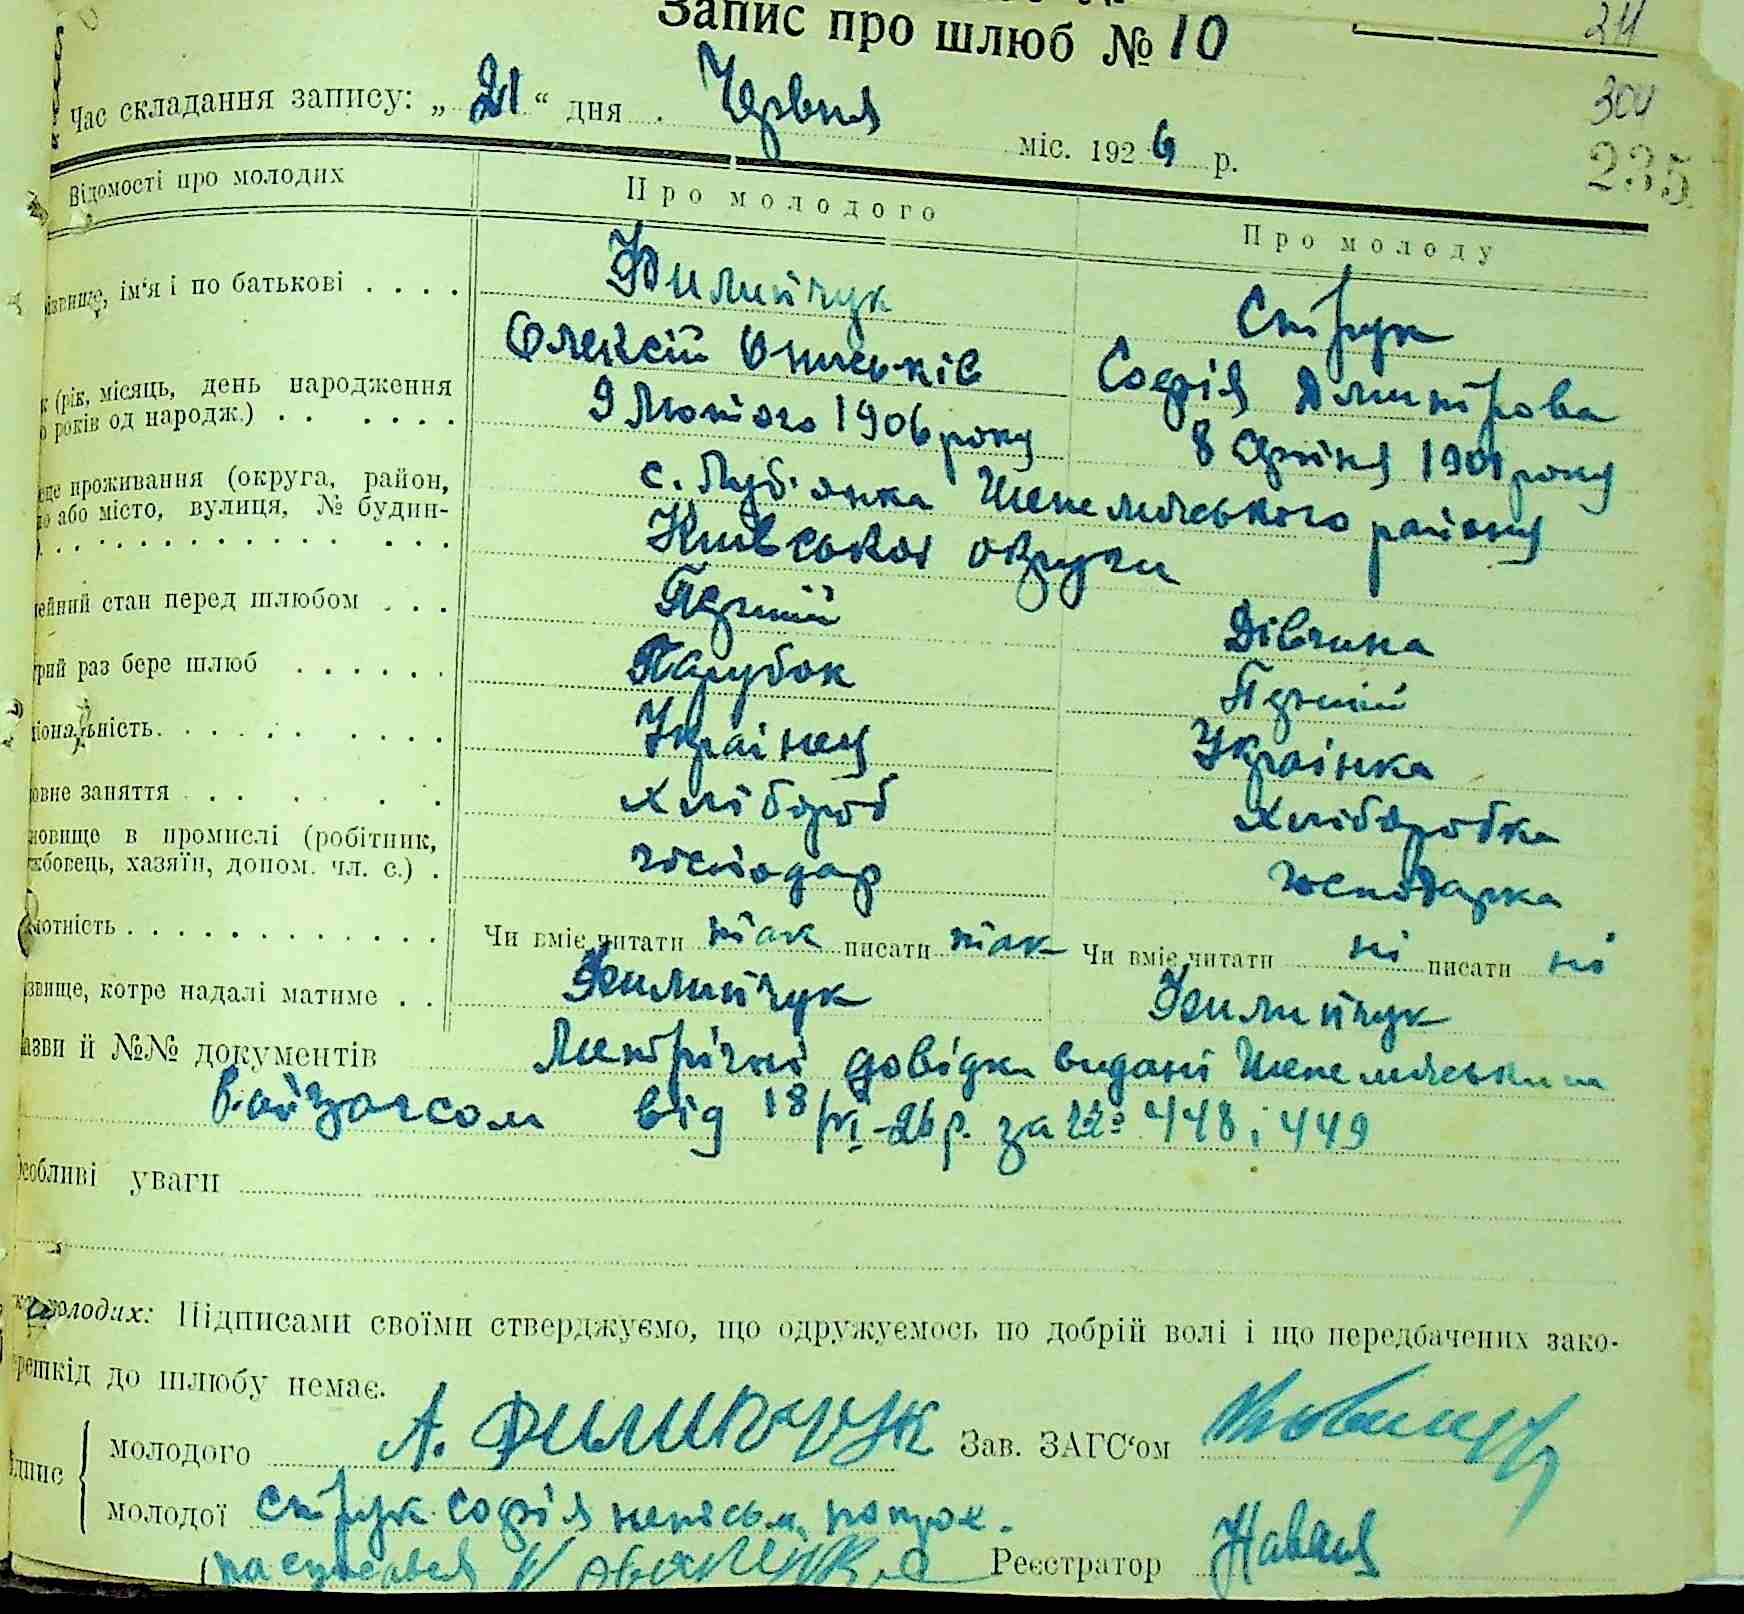 Запис про шлюб № 10
211
Час складання запису: „ 21 “ дня . Червня міс. 1926 р.
304
235
Відомості про молодих Про молодого Про молоду
ізвище, ім‘я і по батькові . . . . Филипчук Струк
ОлексійОниськів Софія Дмитрова
к (рік, місяць, день народження
о років од народж.) . . . . . . . 9 Лютого 1906 року 8 Серпня 1901 року
це проживання (округа, район, с. Луб‘янка Шепелицького району
о або місто, вулиця, № будин-
Київської округи
ейний стан перед шлюбом . . . Перший Дівчина
рий раз бере шлюб . . . . . . Парубок Перший
іональність. . . . . . . . . . Українец Українка
овне заняття . . . . . Хлібороб Хліборобка
новище в промислі (робітник,
жбовець, хазяїн, допом. чл. с.) . господар господарка
мотність . . . . . . . . . . . . . Чи вміє читати так писати так Чи вміє читати ні писати ні
звище, котре надалі матиме . . Филипчук Филипчук
азви й №№ документів Метричні довідки видані Шепелицьким
Райзагсом від 18/VI-26 р. за №№ 448 і 449
Особливі уваги
молодих: Підписами своїми стверджуємо, що одружуємось по добрій волі і що передбачених зако-
решкід до шлюбу немає.
молодого А. Филипчук Зав. ЗАГС‘ом
дпис
молодої Струк Софія неписьм.
Реєстратор